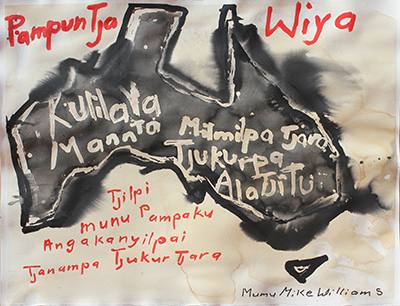 Pampuntja Wiya
Kulilata
Manta Milmilpa Tjara
Tjukurpa
Alatitu
Tjilpi
munu Pampaku
Angakanyilpai
Tjanampa Tjukur Tjara
Mumu Mike Williams